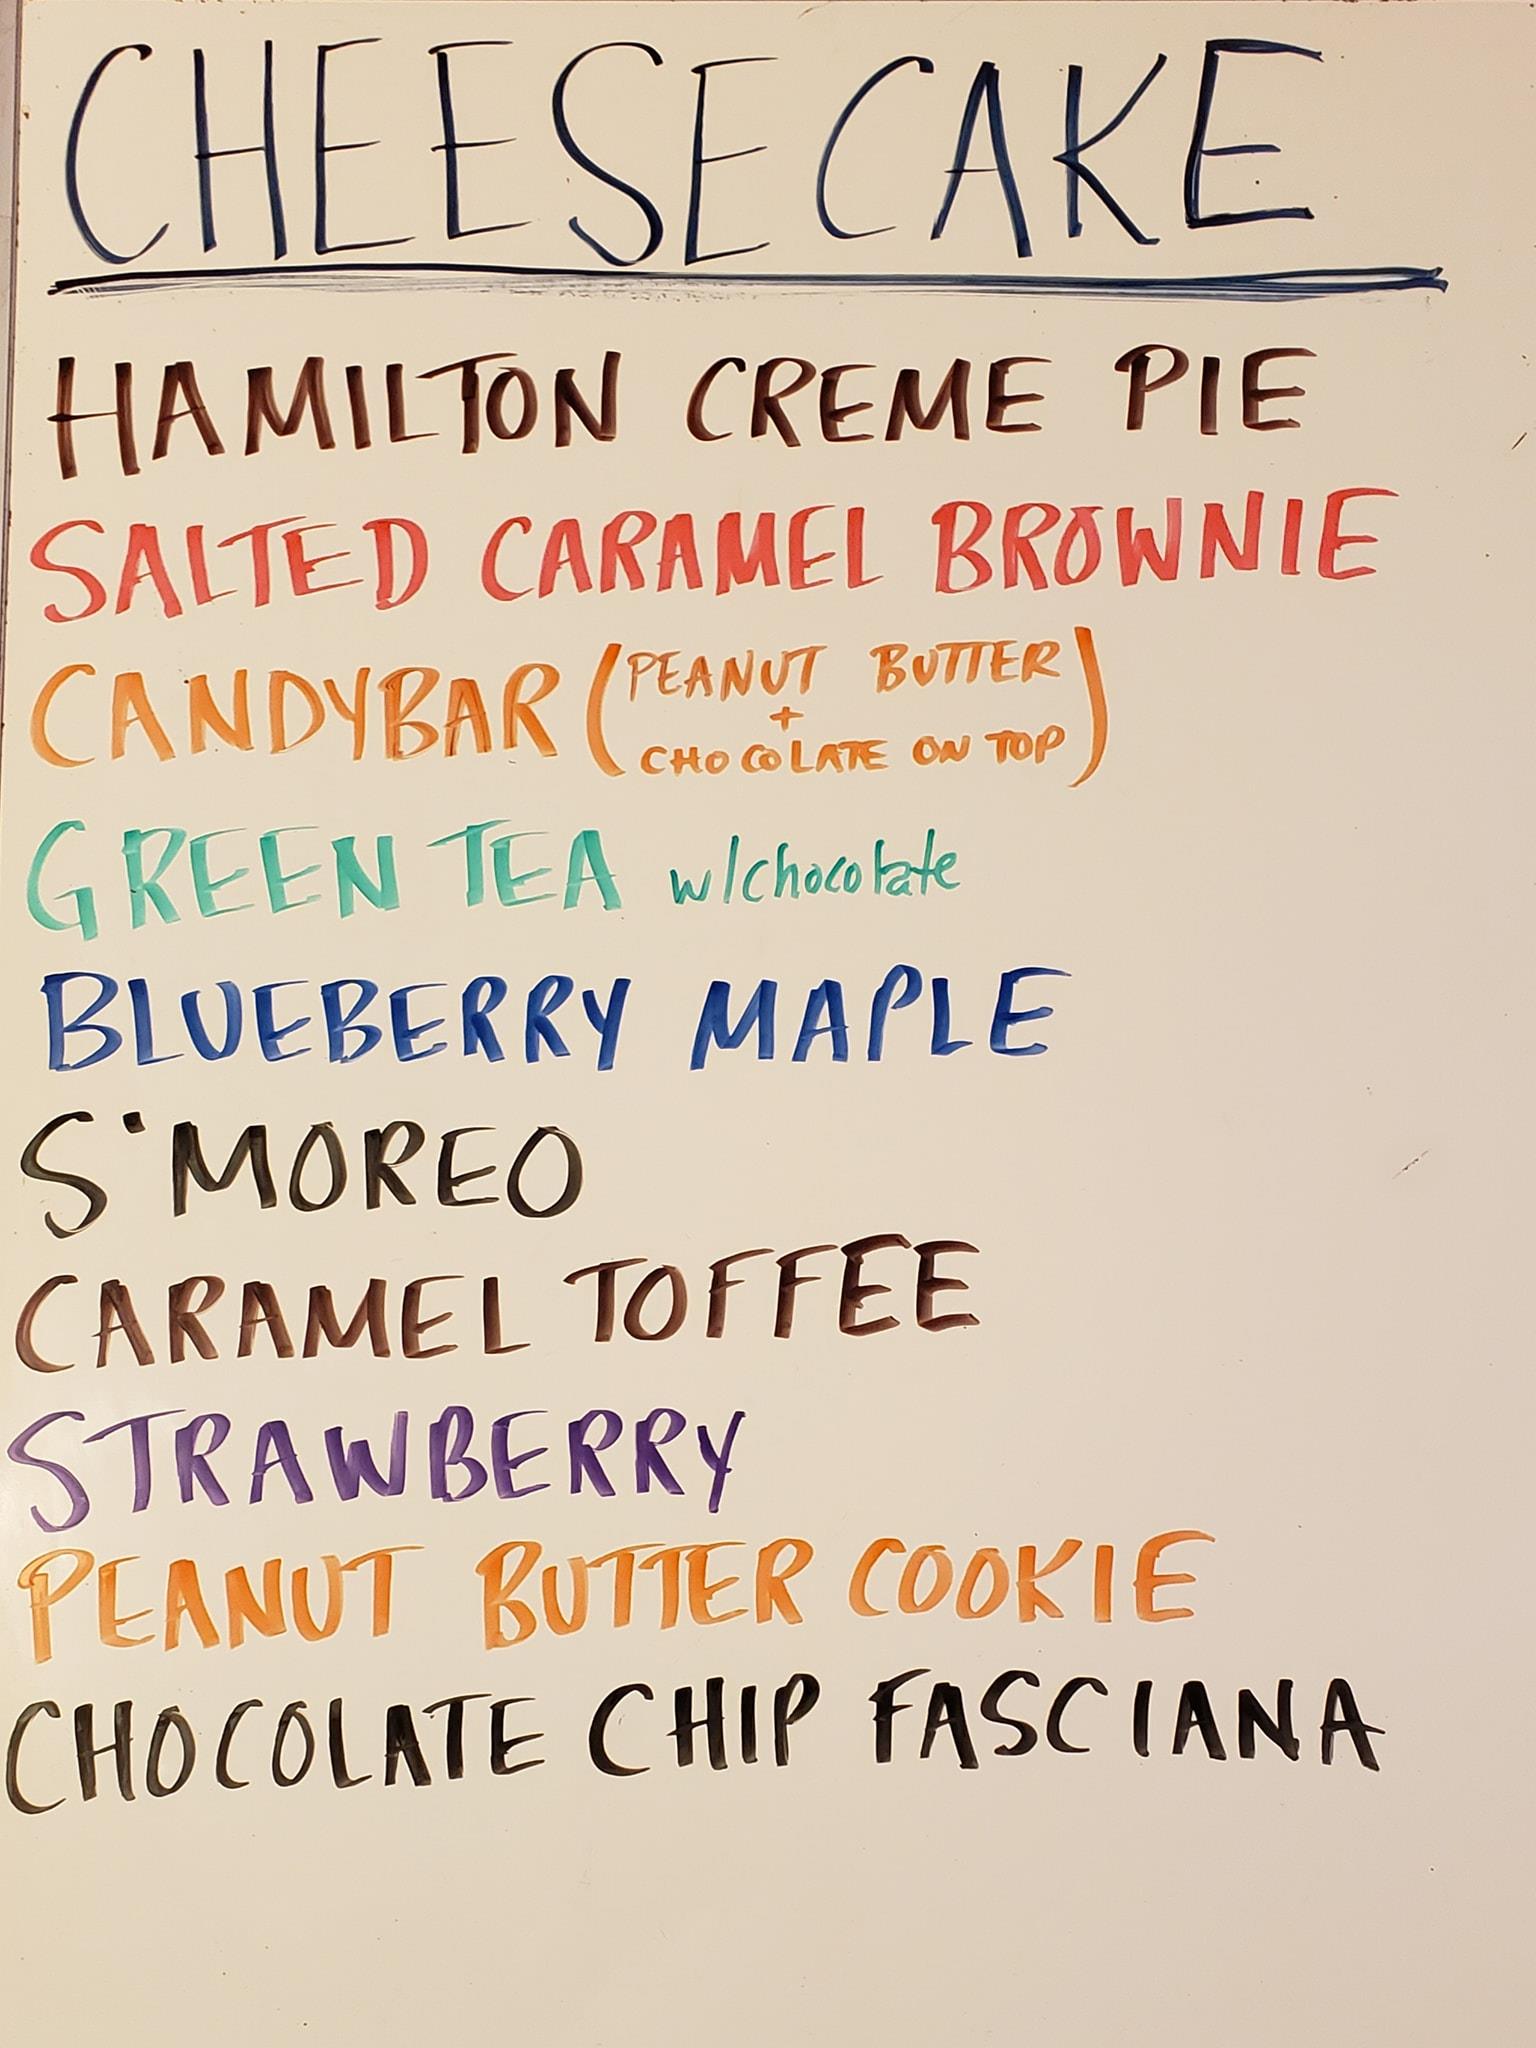 CHEESECAKE
HAMILTON CREME PIE
SALTED CARAMEL BROWNIE
CANDYBAR (PEANUT BUTTER
+
CHOCOLATE ON TOP)
GREEN TEA w/chocolate
BLUEBERRY MAPLE
S'MOREO
CARAMEL TOFFEE
STRAWBERRY
PEANUT BUTTER COOKIE
CHOCOLATE CHIP FASCIANA